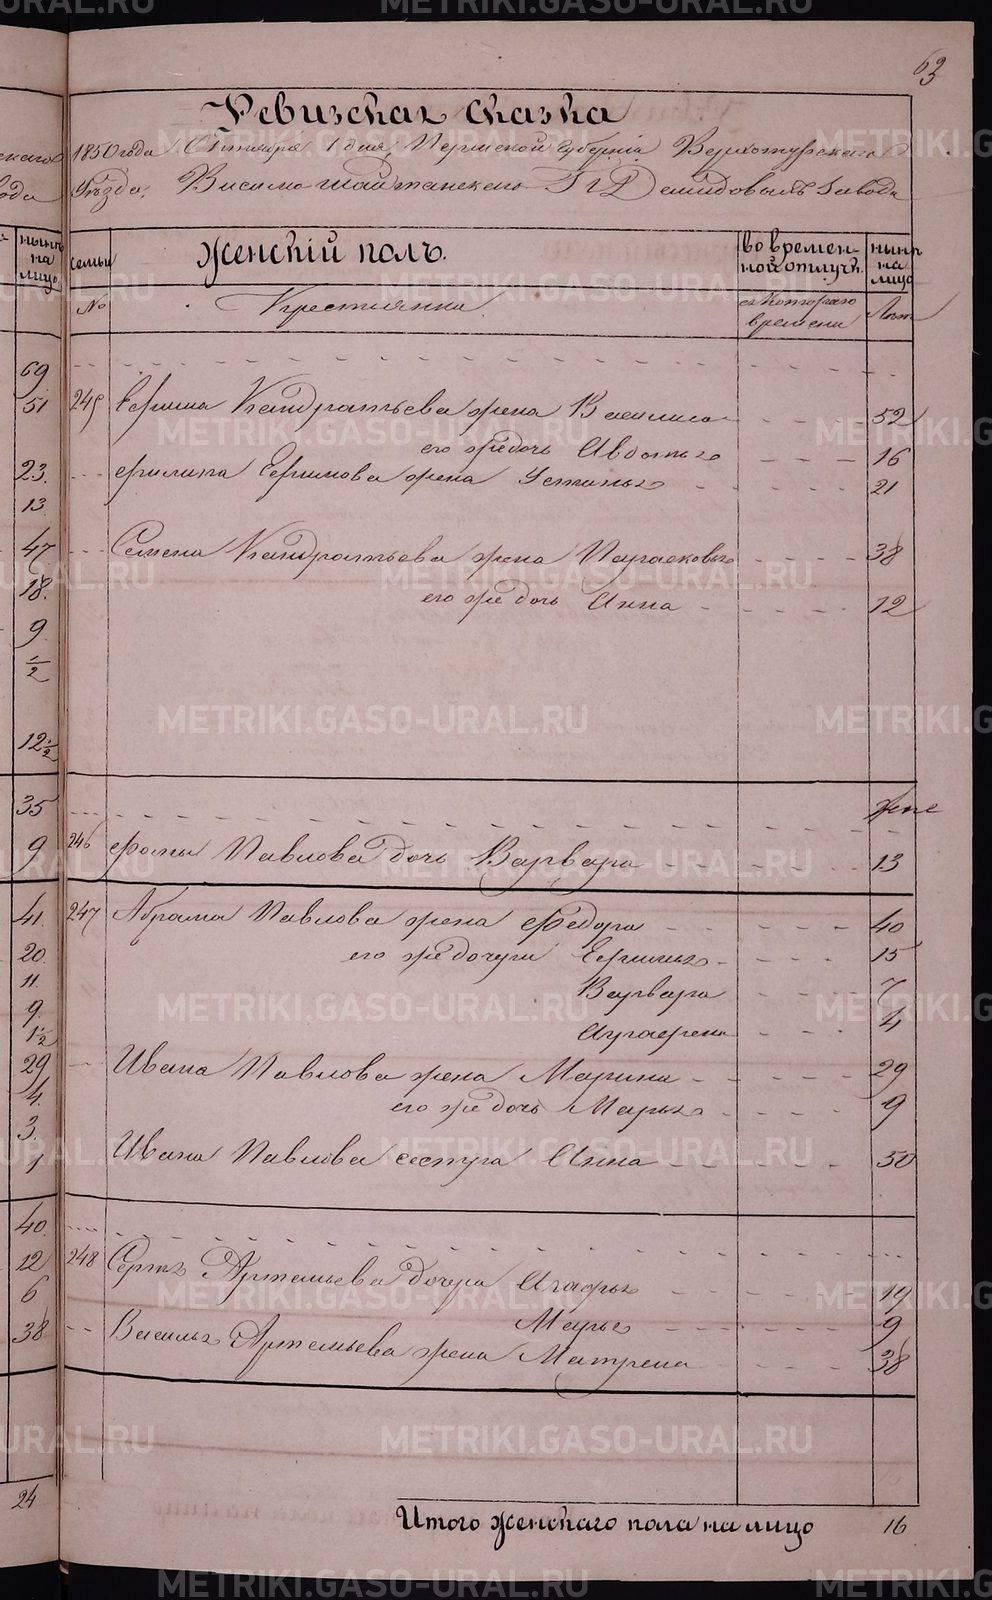 63
Ревизская сказка
1850 года Октября 1 дня Пермской Губернии Верхотурскаго
Уѣзда. Висимо Шайтанскаго Гг Демидовыхъ завода
ныне на лицо
семьи
Женскій полъ.
во времен-
ной отлучк.
ныне на лицо
№
Крестьянки
съ котораго
времени
Лѣт
69
51 245 Ефима Кандратьева жена Василиса 52
его же дочь Авдотья 16
23. Филипа Ефимова жена Устинья 21
13
47 Семена Кандратьева жена Парасковья 38
18. его же дочь Анна 12
9
1/2
12 1/2
35
9 246 Фомы Павлова дочь Варвара 13
41. 247 Абрама Павлова жена Федора 40
20. его же дочери Ефимья 15
11. Варвара 7
9. Аграфена 4
1 1/2
29 Ивана Павлова жена Марина 29
4. его же дочь Марья 9
3.
1 Ивана Павлова сестра Анна 50
40.
12 248 Сергья Артемьева дочери Агафья 19
6 Марья 9
38 Василья Артемьева жена Матрена 38
24
Итого женскаго пола на лицо 16
METRIKI.GASO-URAL.RU